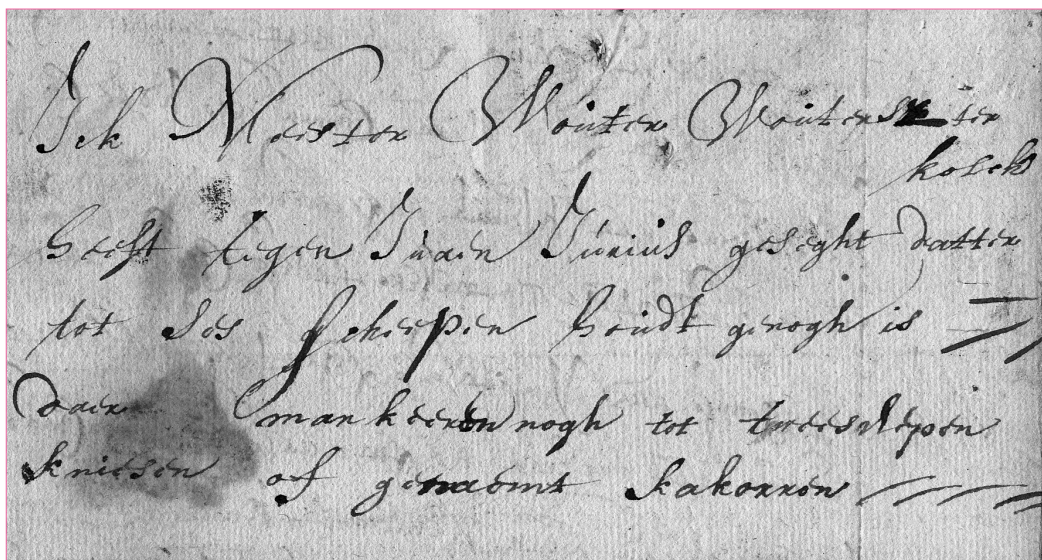 Ick Meester Wouter Wouters ter
kolck
heeft tegen Juien Jurius geseght datter
tot ses scheepen houdt genogh is
daer mankeeren nogh tot twee scepen
kniesen of genaemt kakorren